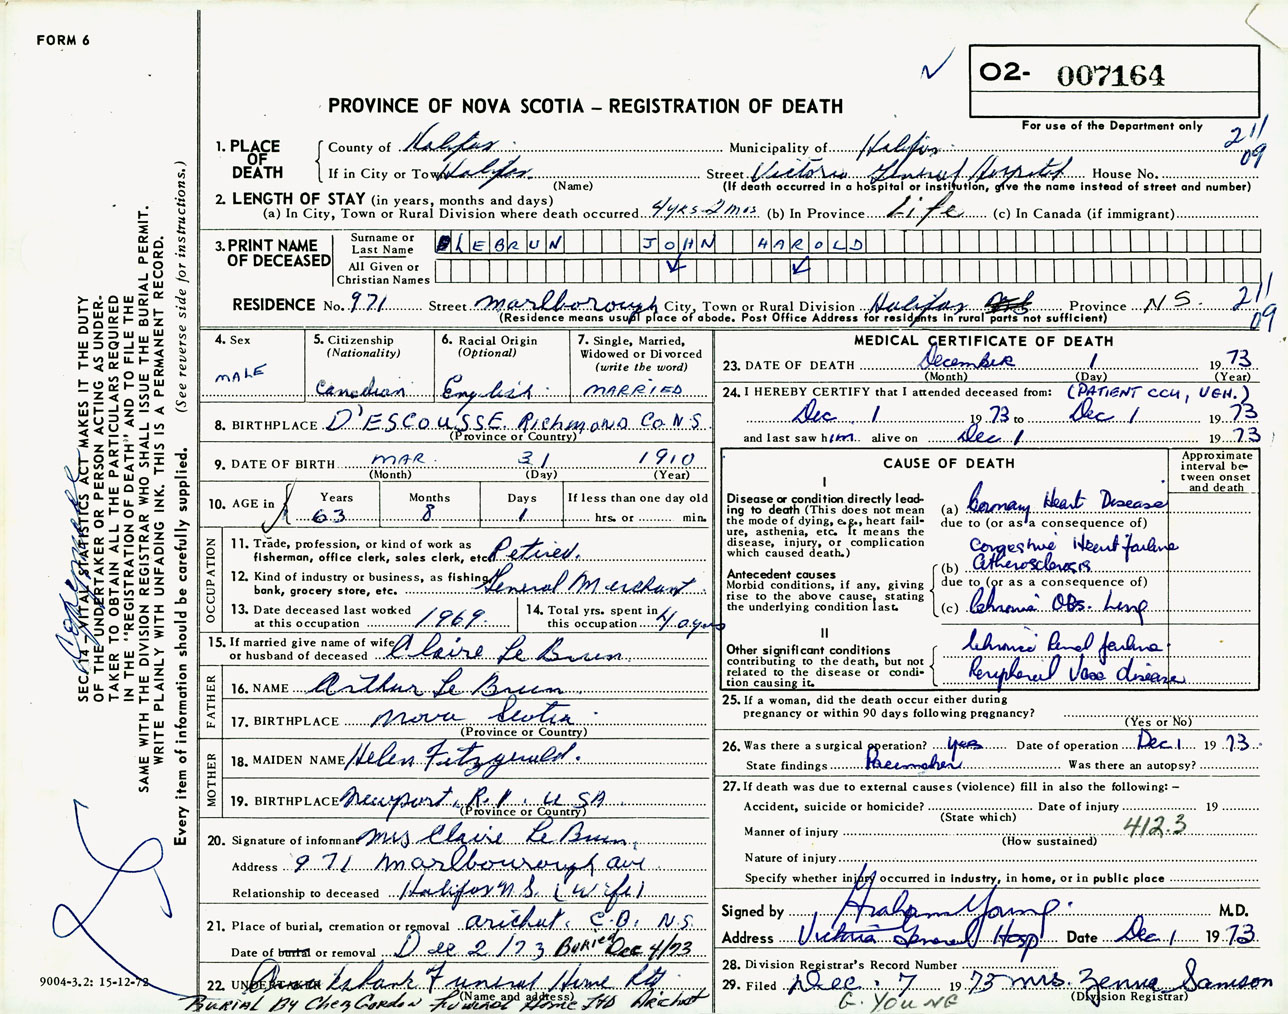 FORM 6
O2- 007164
PROVINCE OF NOVA SCOTIA – REGISTRATION OF DEATH
For use of the Department only
211
09
1. PLACE OF DEATH
County of Halifax Municipality of Halifax
If in City or Town Halifax Street Victoria General Hospital House No.
(Name) (If death occurred in a hospital or institution, give the name instead of street and number)
2. LENGTH OF STAY (in years, months and days)
(a) In City, Town or Rural Division where death occurred 4 yrs-2 mos (b) In Province Life (c) In Canada (if immigrant)
3. PRINT NAME OF DECEASED
Surname or Last Name LEBRUN JOHN HAROLD
All Given or Christian Names
RESIDENCE No. 971 Street Marlborough City, Town or Rural Division Halifax Province N.S.
(Residence means usual place of abode. Post Office Address for residents in rural parts not sufficient)
211
09
4. Sex
MALE
5. Citizenship (Nationality)
Canadian
6. Racial Origin (Optional)
English
7. Single, Married, Widowed or Divorced (write the word)
MARRIED
8. BIRTHPLACE D'ESCOUSSE Richmond Co. N.S.
(Province or Country)
9. DATE OF BIRTH MAR. 31 1910
(Month) (Day) (Year)
10. AGE in Years Months Days If less than one day old
63 8 1 hrs. or min.
OCCUPATION
11. Trade, profession, or kind of work as fisherman, office clerk, sales clerk, etc. Retired.
12. Kind of industry or business, as fishing, bank, grocery store, etc. General Merchant
13. Date deceased last worked at this occupation 1969
14. Total yrs. spent in this occupation 40 yrs
15. If married give name of wife or husband of deceased Claire Le Brun
FATHER
16. NAME Arthur Le Brun
17. BIRTHPLACE Nova Scotia
(Province or Country)
MOTHER
18. MAIDEN NAME Helen Fitzgerald.
19. BIRTHPLACE Newport, R.I. USA
(Province or Country)
20. Signature of informant Mrs Claire Le Brun
Address 971 Marlbourough ave
Relationship to deceased Halifax N.S. (Wife)
21. Place of burial, cremation or removal Arichat, C.B. N.S.
Date of burial or removal Dec 2/73 BURIED Dec 4/73
22. Cruikshank Funeral Home Ltd
(Name and address)
BURIAL BY Chez Gordon Funeral Home Ltd Arichat
MEDICAL CERTIFICATE OF DEATH
23. DATE OF DEATH December 1 1973
(Month) (Day) (Year)
24. I HEREBY CERTIFY that I attended deceased from: (PATIENT CCU, VGH.)
Dec 1 1973 to Dec 1 1973
and last saw him alive on Dec 1 1973
CAUSE OF DEATH
Approximate interval between onset and death
I
Disease or condition directly leading to death (This does not mean the mode of dying, e.g., heart failure, asthenia, etc. It means the disease, injury, or complication which caused death.)
(a) Coronary Heart Disease
due to (or as a consequence of)
Congestive Heart failure
Antecedent causes
Morbid conditions, if any, giving rise to the above cause, stating the underlying condition last.
(b) Atherosclerosis
due to (or as a consequence of)
(c) Chronic Obs. Lung
II
Other significant conditions contributing to the death, but not related to the disease or condition causing it.
Chronic Renal failure
Peripheral Vasc disease
25. If a woman, did the death occur either during pregnancy or within 90 days following pregnancy?
(Yes or No)
26. Was there a surgical operation? yes Date of operation Dec 1 1973
State findings Pacemaker Was there an autopsy?
27. If death was due to external causes (violence) fill in also the following: –
Accident, suicide or homicide? Date of injury 19
(State which)
Manner of injury 412.3
(How sustained)
Nature of injury
Specify whether injury occurred in industry, in home, or in public place
Signed by Graham Young M.D.
Address Victoria General Hosp Date Dec 1 1973
28. Division Registrar's Record Number
29. Filed Dec. 7 1973 Mrs. Zenna Samson
(Division Registrar)
G. YOUNG
SEC. 14 – VITAL STATISTICS ACT MAKES IT THE DUTY
OF THE UNDERTAKER OR PERSON ACTING AS UNDER-
TAKER TO OBTAIN ALL THE PARTICULARS REQUIRED
IN THE "REGISTRATION OF DEATH" AND TO FILE THE
SAME WITH THE DIVISION REGISTRAR WHO SHALL ISSUE THE BURIAL PERMIT.
WRITE PLAINLY WITH UNFADING INK. THIS IS A PERMANENT RECORD.
Every item of information should be carefully supplied. (See reverse side for instructions.)
9004-3.2: 15-12-72